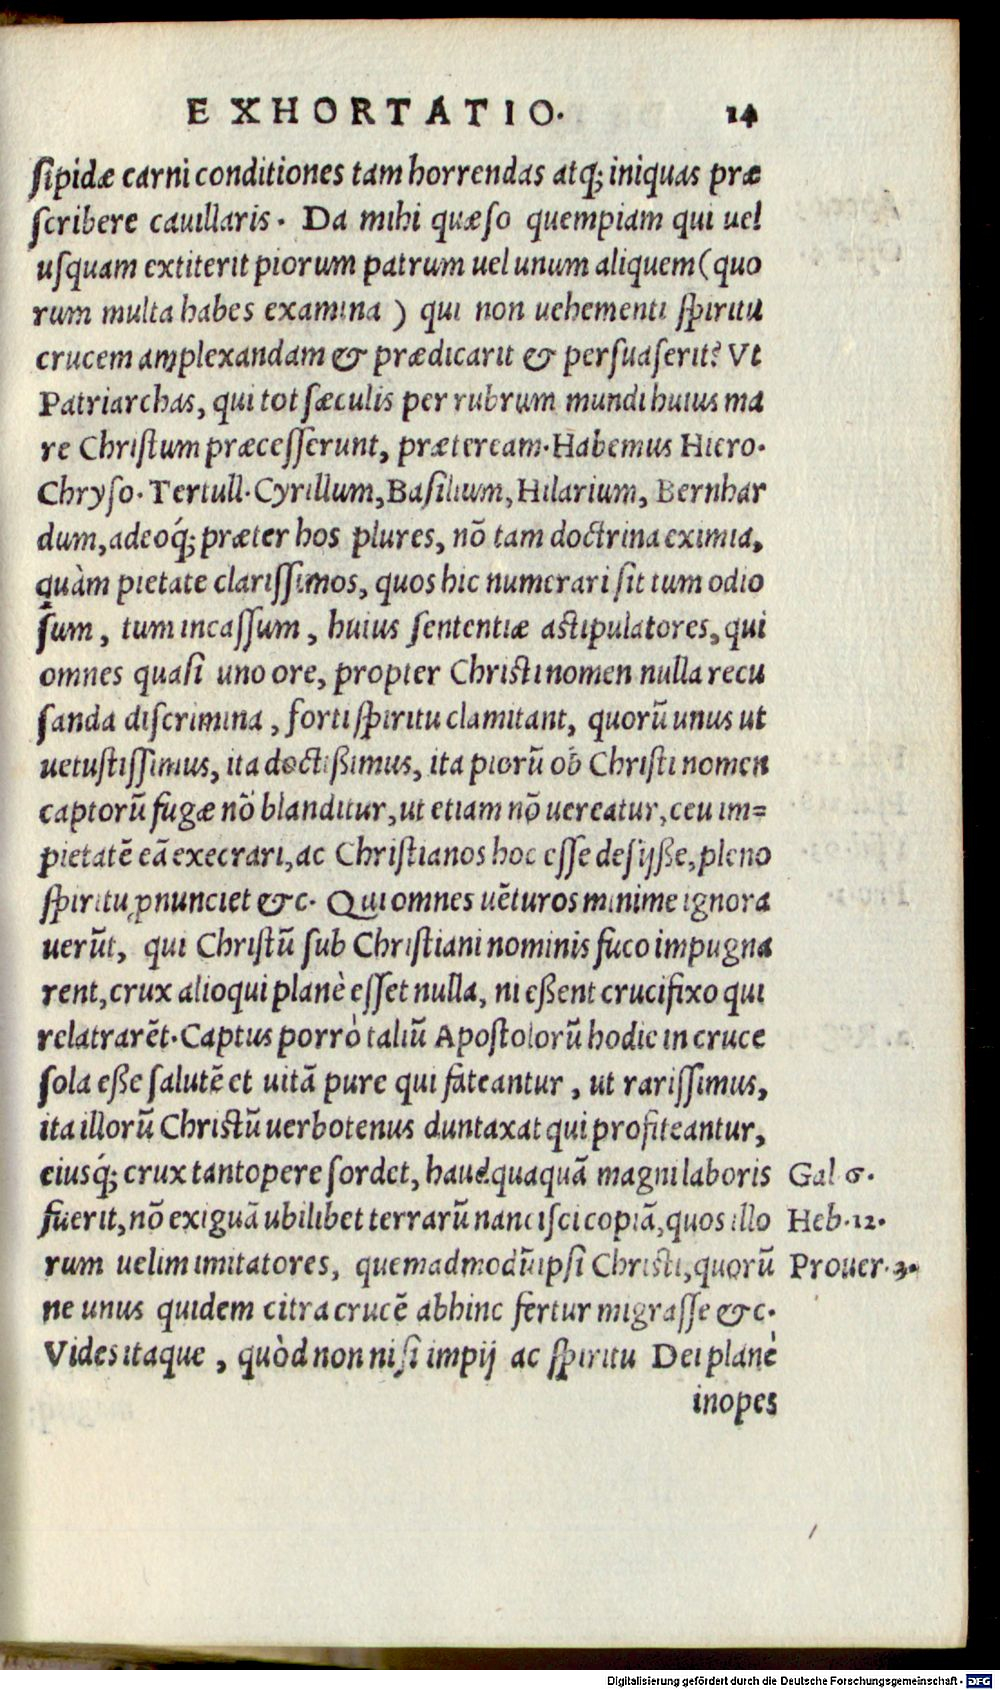 EXHORTATIO. 14
ſipidæ carni conditiones tam horrendas atq; iniquas præ
ſcribere cauillaris. Da mihi quæſo quempiam qui uel
uſquam extiterit piorum patrum uel unum aliquem (quo
rum multa habes examina) qui non uehementi ſpiritu
crucem amplexandam & prædicarit & perſuaſerit? Vt
Patriarchas, qui tot ſæculis per rubrum mundi huius ma
re Chriſtum præceſſerunt, præteream. Habemus Hiero.
Chryſo. Tertull. Cyrillum, Baſilium, Hilarium, Bernhar
dum, adeoq́; præter hos plures, nõ tam doctrina eximia,
quàm pietate clariſſimos, quos hic numerari ſit tum odio
ſum, tum incaſſum, huius ſententiæ aſtipulatores, qui
omnes quaſi uno ore, propter Chriſti nomen nulla recu
ſanda diſcrimina, forti ſpiritu clamitant, quorũ unus ut
uetuſtiſſimus, ita doctißimus, ita piorũ ob Chriſti nomen
captorũ fugæ nõ blanditur, ut etiam nõ uereatur, ceu im=
pietatẽ eã execrari, ac Chriſtianos hoc eſſe deſijße, pleno
ſpiritu ꝓnunciet &c. Qui omnes uẽturos minime ignora
uerũt, qui Chriſtũ ſub Chriſtiani nominis fuco impugna
rent, crux alioqui planè eſſet nulla, ni eßent crucifixo qui
relatrarẽt. Captus porrò taliũ Apoſtolorũ hodie in cruce
ſola eße ſalutẽ et uitã pure qui fateantur, ut rariſſimus,
ita illorũ Chriſtũ uerbotenus duntaxat qui profiteantur,
eiusq́; crux tantopere ſordet, haudquaquã magni laboris Gal 6.
fuerit, nõ exiguã ubilibet terrarũ nanciſci copiã, quos illo Heb. 12.
rum uelim imitatores, quemadmodũ ipſi Chriſti, quorũ Prouer. 3.
ne unus quidem citra crucẽ abhinc fertur migraſſe &c.
Vides itaque, quòd non niſi impij ac ſpiritu Dei planè
inopes
Digitalisierung gefördert durch die Deutsche Forschungsgemeinschaft - DFG